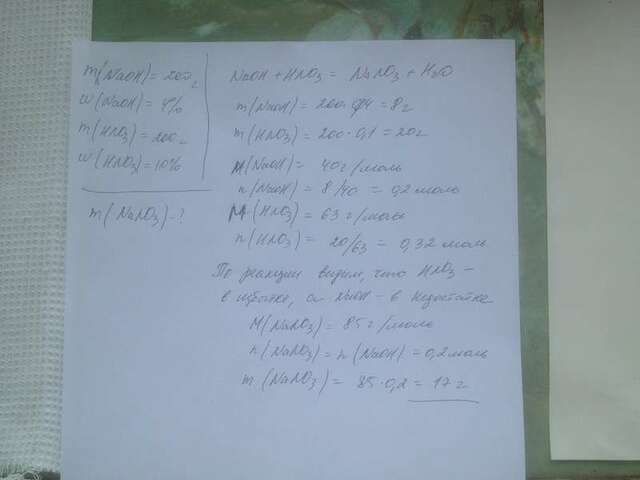 m(NaOH) = 200 г
w(NaOH) = 4%
m(HNO₃) = 200 г
w(HNO₃) = 10%
m(NaNO₃) - ?
NaOH + HNO₃ = NaNO₃ + H₂O
m(NaOH) = 200·0,04 = 8г
m(HNO₃) = 200·0,1 = 20г
M(NaOH) = 40 г/моль
n(NaOH) = 8/40 = 0,2 моль
M(HNO₃) = 63 г/моль
n(HNO₃) = 20/63 = 0,32 моль
По реакции видно, что HNO₃ -
в избытке, а NaOH - в недостатке
M(NaNO₃) = 85 г/моль
n(NaNO₃) = n(NaOH) = 0,2 моль
m(NaNO₃) = 85·0,2 = 17 г